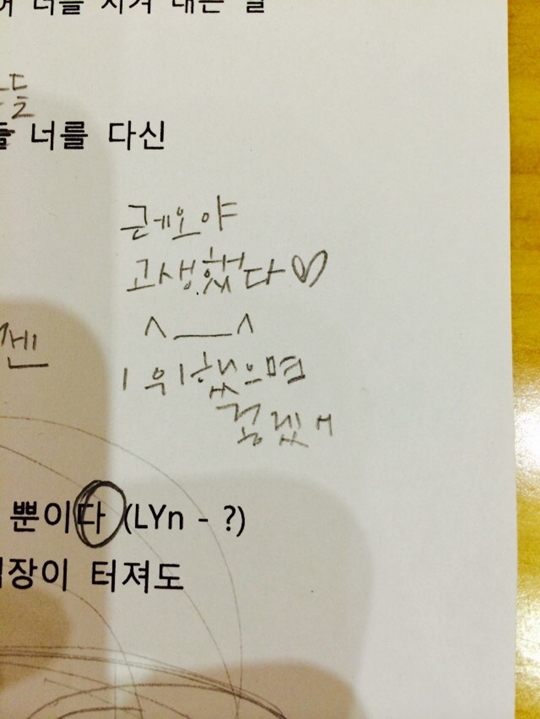 너를 지켜 내는
들
너를 다신
고생했다♡
^__^
1위했으면
좋겠어
젠
뿐이다 (LYn - ?)
장이 터져도